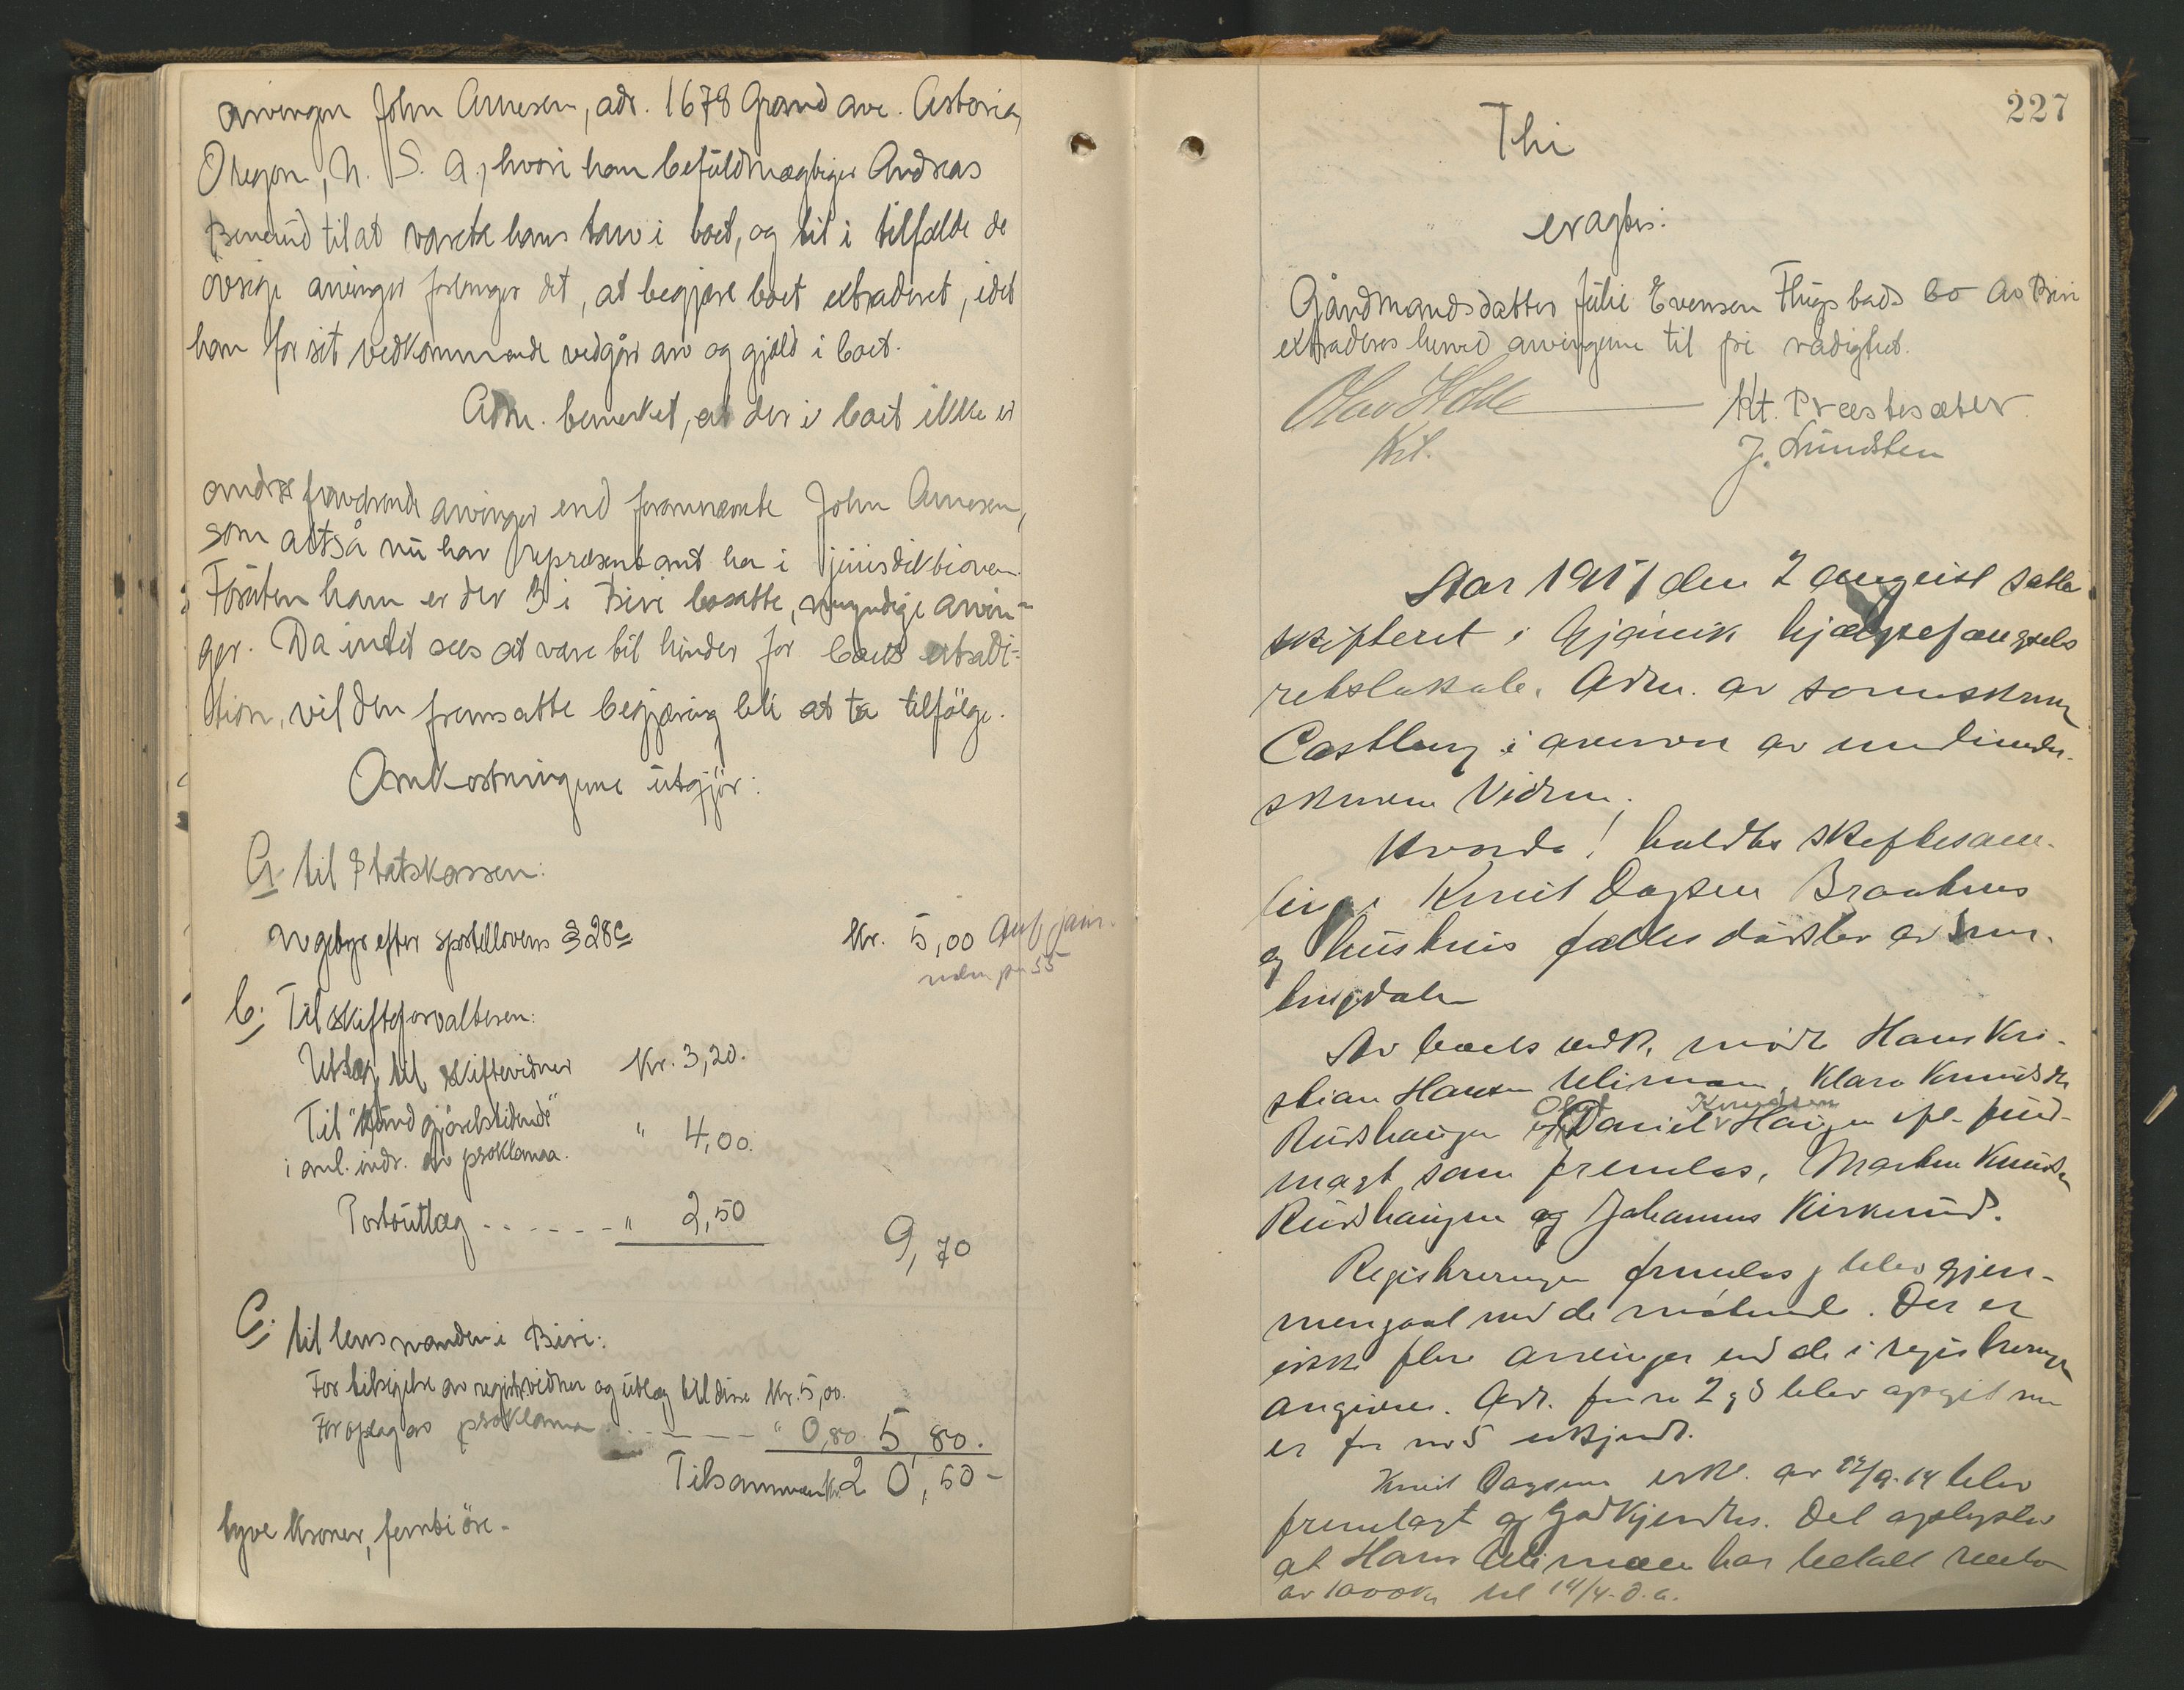 arvingen John Arnesen, adr. 1678 Grand ave. Astoria,
Oregon, U. S. A., hvori han befuldmægtiger Andreas
til at vareta hans tarv i boet, og til i tilfælde de
øvrige arvinger forlanger det, at begjære boet extraderet, idet
han for sit vedkommende vedgår arv og gjæld i boet.
Adm. bemerket, at der i boet ikke er
andre fraværende arvinger end forannævnte John Arnesen,
som altså nu har repræsentant her i jurisdiktionen.
Foruten ham er der 3 i Biri bosatte, myndige arvin-
ger. Da intet sees at være til hinder for boets extradi-
tion, vil den fremsatte begjæring bli at ta tilfølge.
Omkostningerne utgjør:
A til Statskassen:
Avgebyr efter sportellovens § 28c
Kr. 5,00
b. Til skifteforvalteren:
Utlæg til skiftevidner Kr. 3,20.
Til "Kundgjørelsestidende"
i anl. indr. av proklama. " 4,00.
Portoutlæg - - - - - - " 2,50
9,70
C. til lensmanden i Biri:
For tilsigelse av registr.vidner og utlæg til disse Kr. 5,00.
For oplag av proklama - - - - " 0,80 5,80.
Tilsammen Kr. 20,50 -
tyve kroner, femti øre -
227
Thi
eragtes:
Gårdmandsdatter Julie Evensen Flugstads bo av Biri
extraderes herved arvingerne til fri rådighet.
Olav Holte Kt. Præstesæter
Kst. J. Lundsten
Aar 191 den 2 august sattes
skifteret i Gjøvik hjælpefængsels
retslokale. Adm. av sorenskriver
Castberg i nærvær av
vidner.
Hvorda! holdtes skiftesam-
ling i Knut Dagsen Braatens
og hustrus fælles dødsbo av
Av boets vedk. møtte Hans Kri-
stian Hansen Ulimoen, Klara Knudsdtr
Olaf Knudsen
Rudshaugen og Daniel Haugen ifl. fuld-
magt som fremlas, Marten Knudsen
Rudshaugen og Johannes Kirkerud.
Registreringen fremlas og blev gjen-
nemgaat med de møtende. Der er
ikke flere arvinger end de i registreringen
angivne. Adr. for no 2 g 3 blev opgit men
er for no 5 ukjendt.
Knut Dagsens erkl. av 14 blev
fremlagt og godkjendtes. Det oplystes
at Hans Ulimoen har betalt renter
av 1000 kr til 14/4. d.a.